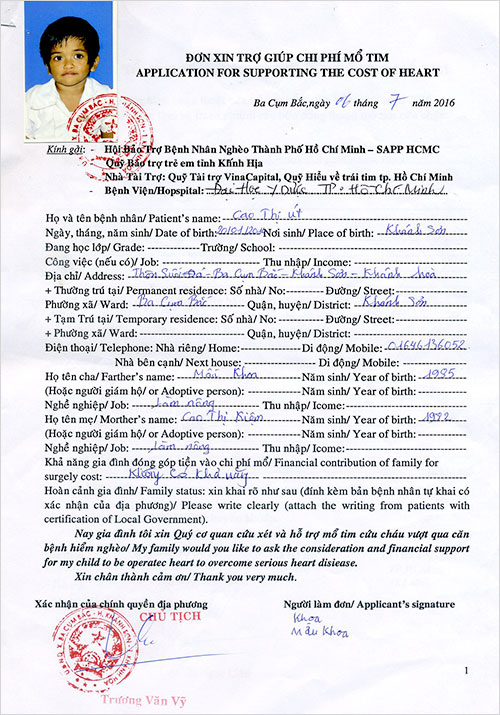 ĐƠN XIN TRỢ GIÚP CHI PHÍ MỔ TIM
APPLICATION FOR SUPPORTING THE COST OF HEART
Ba Cụm Bắc, ngày 06 tháng 7 năm 2016
Kính gửi: - Hội Bảo Trợ Bệnh Nhân Nghèo Thành Phố Hồ Chí Minh – SAPP HCMC
Quỹ Bảo trợ trẻ em tỉnh Khánh Hòa
- Nhà Tài Trợ: Quỹ Tài trợ VinaCapital, Quỹ Hiểu về trái tim tp. Hồ Chí Minh
- Bệnh Viện/Hopspital: Đại Học Y Dược TP. Hồ Chí Minh
Họ và tên bệnh nhân/ Patient's name: Cao Thị Út
Ngày, tháng, năm sinh/ Date of birth: 20/01/201 Nơi sinh/ Place of birth: Khánh Sơn
Đang học lớp/ Grade: Trường/ School:
Công việc (nếu có)/ Job: Thu nhập/ Income:
Địa chỉ/ Address: Thôn Suối Đá - Ba Cụm Bắc - Khánh Sơn - Khánh Hòa
+ Thường trú tại/ Permanent residence: Số nhà/ No: Đường/ Street:
Phường xã/ Ward: Ba Cụm Bắc Quận, huyện/ District: Khánh Sơn
+ Tạm Trú tại/ Temporary residence: Số nhà/ No: Đường/ Street:
+ Phường xã/ Ward: Quận, huyện/ District:
Điện thoại/ Telephone: Nhà riêng/ Home: Di động/ Mobile: 01646136052
Nhà bên cạnh/ Next house: Di động/ Mobile:
Họ tên cha/ Farther's name: Mấu Khoa Năm sinh/ Year of birth: 1985
(Hoặc người giám hộ/ or Adoptive person): Năm sinh/ Year of birth:
Nghề nghiệp/ Job: Làm nông Thu nhập/ Icome:
Họ tên mẹ/ Morther's name: Cao Thị Kiệm Năm sinh/ Year of birth: 1992
(Hoặc người giám hộ/ or Adoptive person): Năm sinh/ Year of birth:
Nghề nghiệp/ Job: Làm nông Thu nhập/ Income:
Khả năng gia đình đóng góp tiền vào chi phí mổ/ Financial contribution of family for
surgely cost: Không có khả năng
Hoàn cảnh gia đình/ Family status: xin khai rõ như sau (đính kèm bản bệnh nhân tự khai có
xác nhận của địa phương)/ Please write clearly (attach the writing from patients with
certification of Local Government).
Nay gia đình tôi xin Quý cơ quan cứu xét và hỗ trợ mổ tim cứu cháu vượt qua căn
bệnh hiểm nghèo/ My family would you like to ask the consideration and financial support
for my child to be operatec heart to overcome serious heart disiease.
Xin chân thành cảm ơn/ Thank you very much.
Xác nhận của chính quyền địa phương Người làm đơn/ Applicant's signature
CHỦ TỊCH
Khoa
Mấu Khoa
Trương Văn Vỹ
1